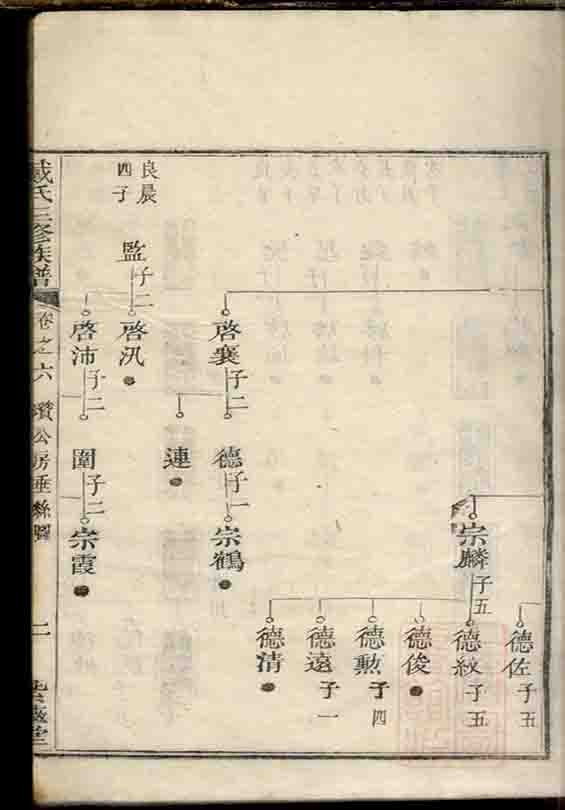 德佐子五
宗麟子五
德紋子五
德俊
德勲子四
德遠子一
德清
啓襄子二
德子一
宗鶴
連
良晨
四子
監子二
啓汎
啓沛子二
圍子二
宗霞
戴氏三修族譜
卷之六
瓚公房垂絲圖
二